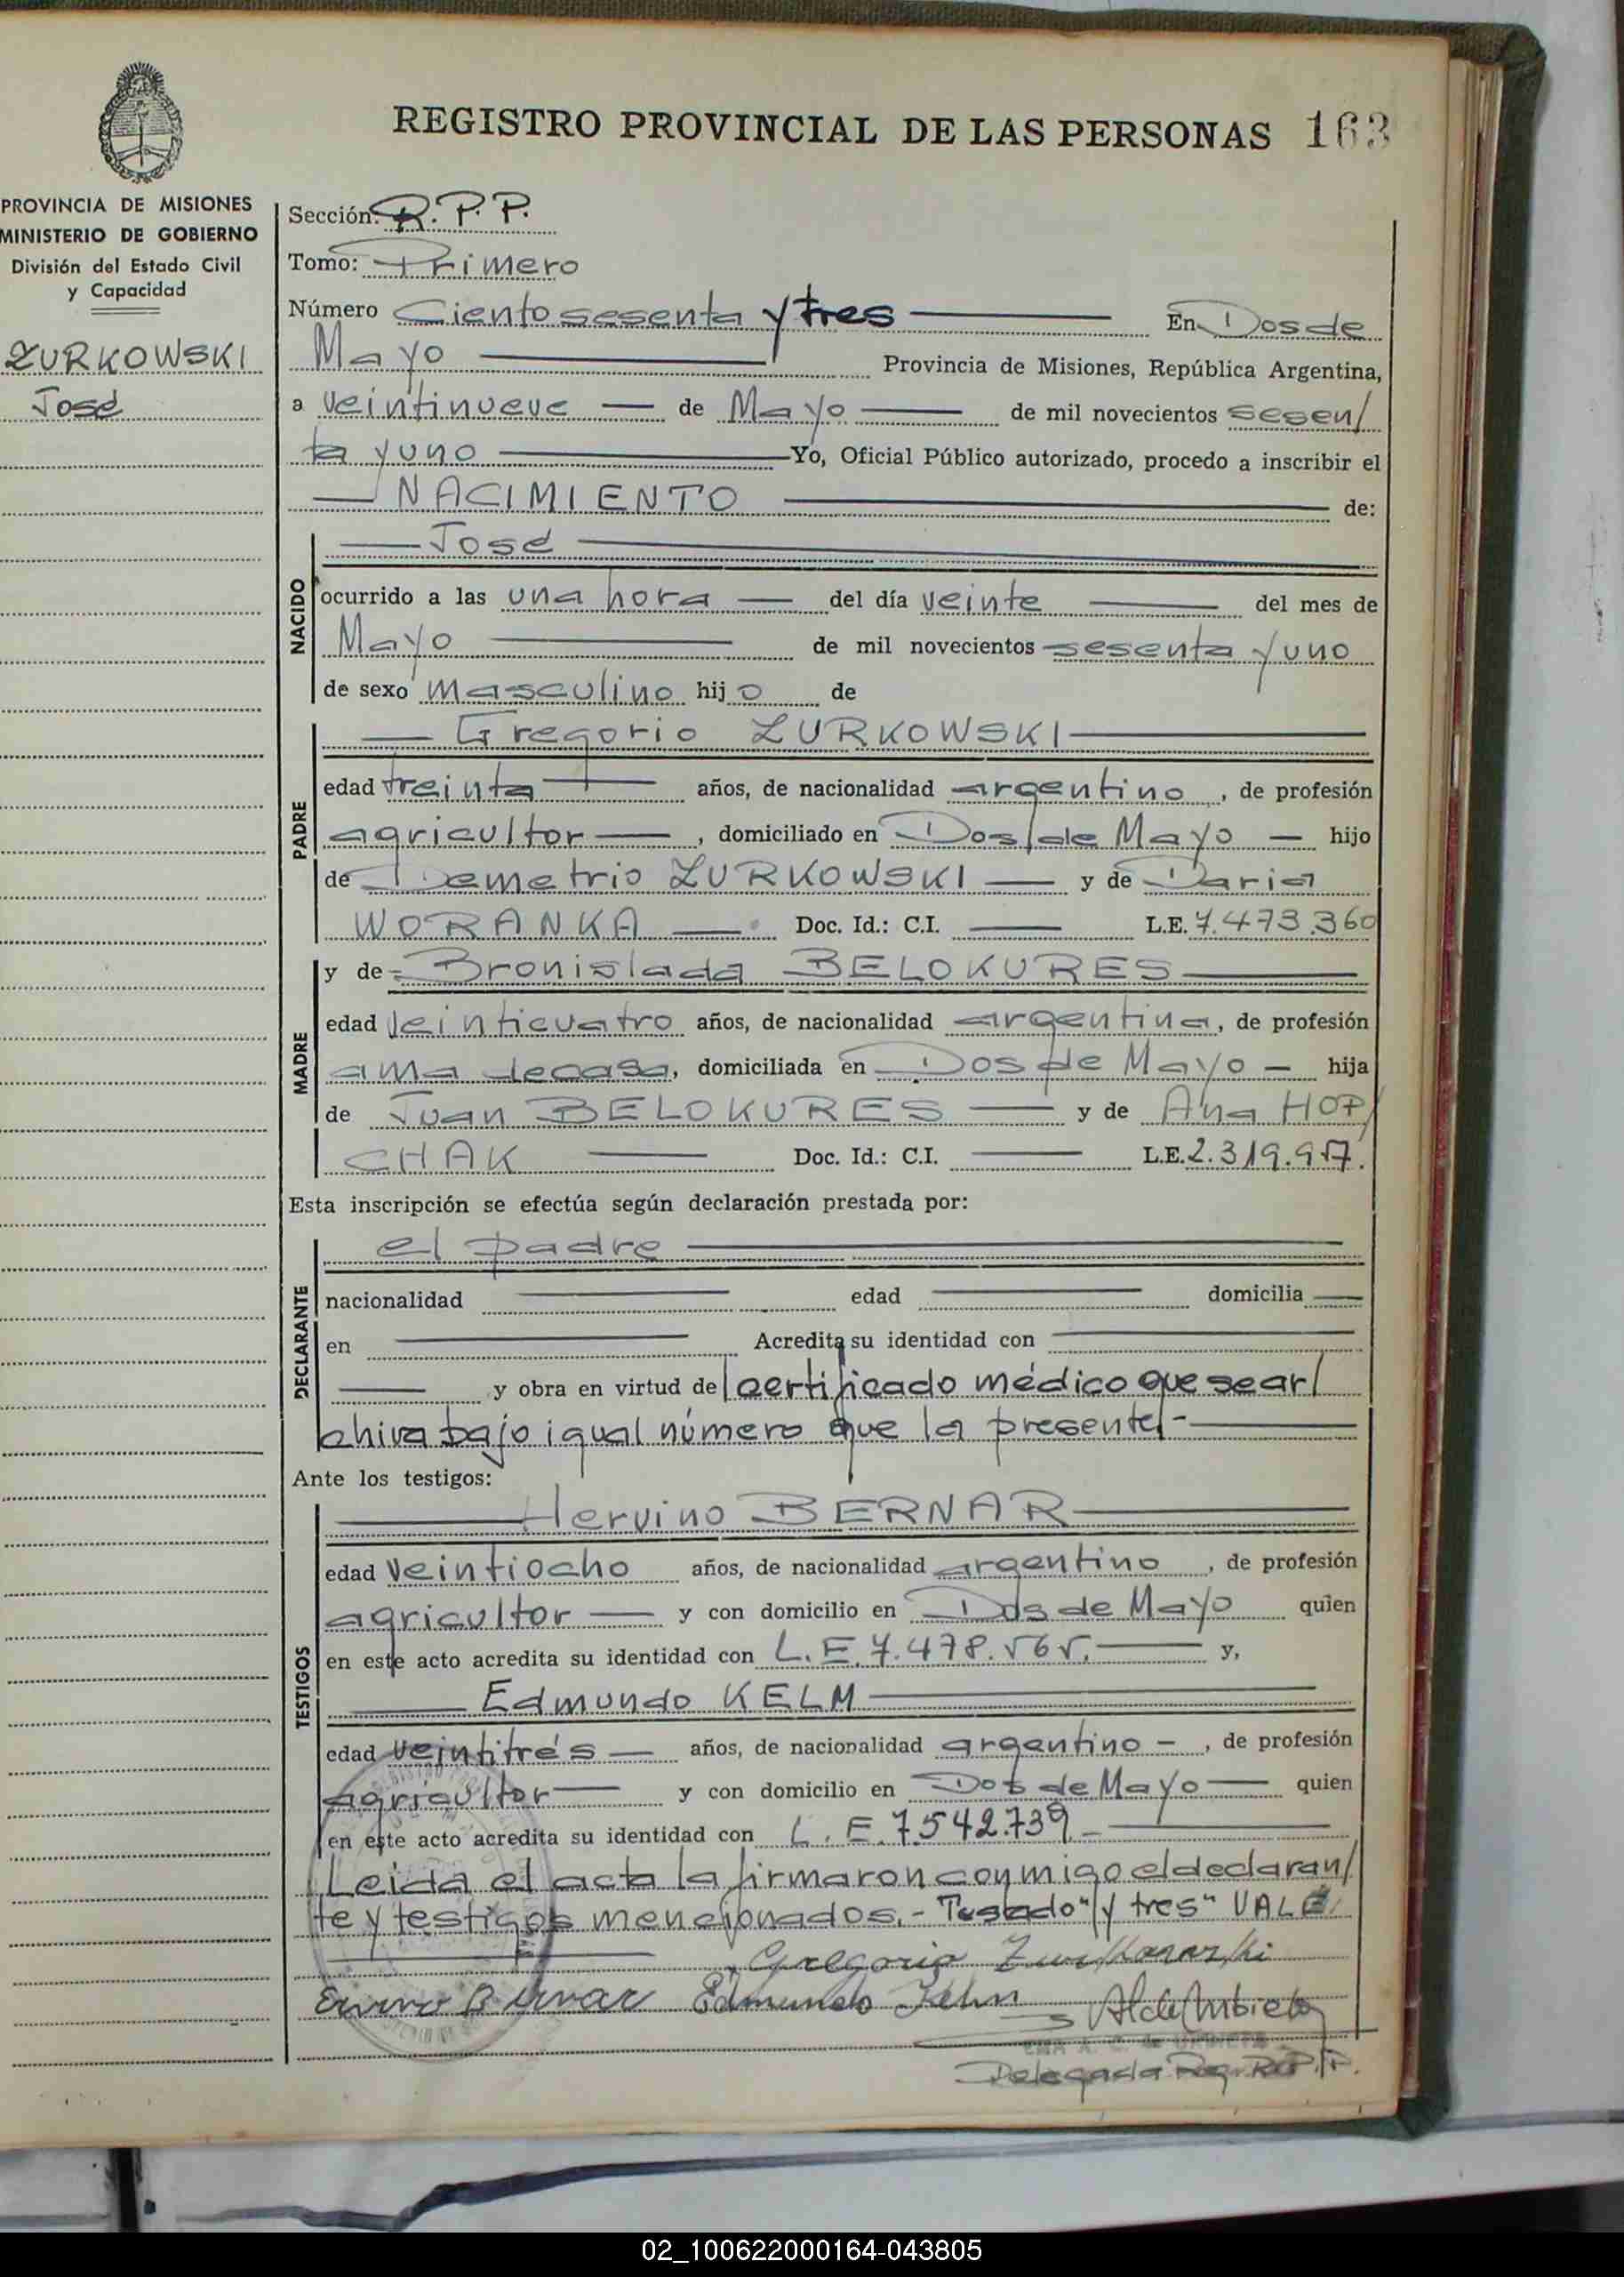 REGISTRO PROVINCIAL DE LAS PERSONAS 163
PROVINCIA DE MISIONES
MINISTERIO DE GOBIERNO
División del Estado Civil
y Capacidad
ZURKOWSKI
José
Sección: R. P. P.
Tomo: Primero
Número Ciento sesenta y tres En Dos de
Mayo Provincia de Misiones, República Argentina,
a veintinueve de Mayo de mil novecientos sesen/
ta y uno Yo, Oficial Público autorizado, procedo a inscribir el
NACIMIENTO de:
NACIDO
José
ocurrido a las una hora del día veinte del mes de
Mayo de mil novecientos sesenta y uno
de sexo masculino hijo de
PADRE
Gregorio ZURKOWSKI
edad treinta años, de nacionalidad argentino, de profesión
agricultor, domiciliado en Dos de Mayo hijo
de Demetrio ZURKOWSKI y de Daria
WORANKA Doc. Id.: C.I. L.E. 7.473.360
MADRE
y de Bronislada BELOKURES
edad veinticuatro años, de nacionalidad argentina, de profesión
ama de casa, domiciliada en Dos de Mayo hija
de Juan BELOKURES y de Ana HOP/
CHAK Doc. Id.: C.I. L.E. 2.319.917.
Esta inscripción se efectúa según declaración prestada por:
DECLARANTE
el padre
nacionalidad edad domicilia
en Acredita su identidad con
y obra en virtud de certificado médico que se ar/
chiva bajo igual número que la presente.-
Ante los testigos:
TESTIGOS
Hervino BERNAR
edad veintiocho años, de nacionalidad argentino, de profesión
agricultor y con domicilio en Dos de Mayo quien
en este acto acredita su identidad con L.E. 7.478.565. y,
Edmundo KELM
edad veintitrés años, de nacionalidad argentino -, de profesión
agricultor y con domicilio en Dos de Mayo quien
en este acto acredita su identidad con L.E. 7.542.739 -
Leida el acta la firmaron conmigo el declaran/
te y testigos mencionados.- Testado "y tres" VALE
Gregorio Zurkowski
Bernar Edmundo Kelm
Delegada Reg. R.P.P.
02_100622000164-043805